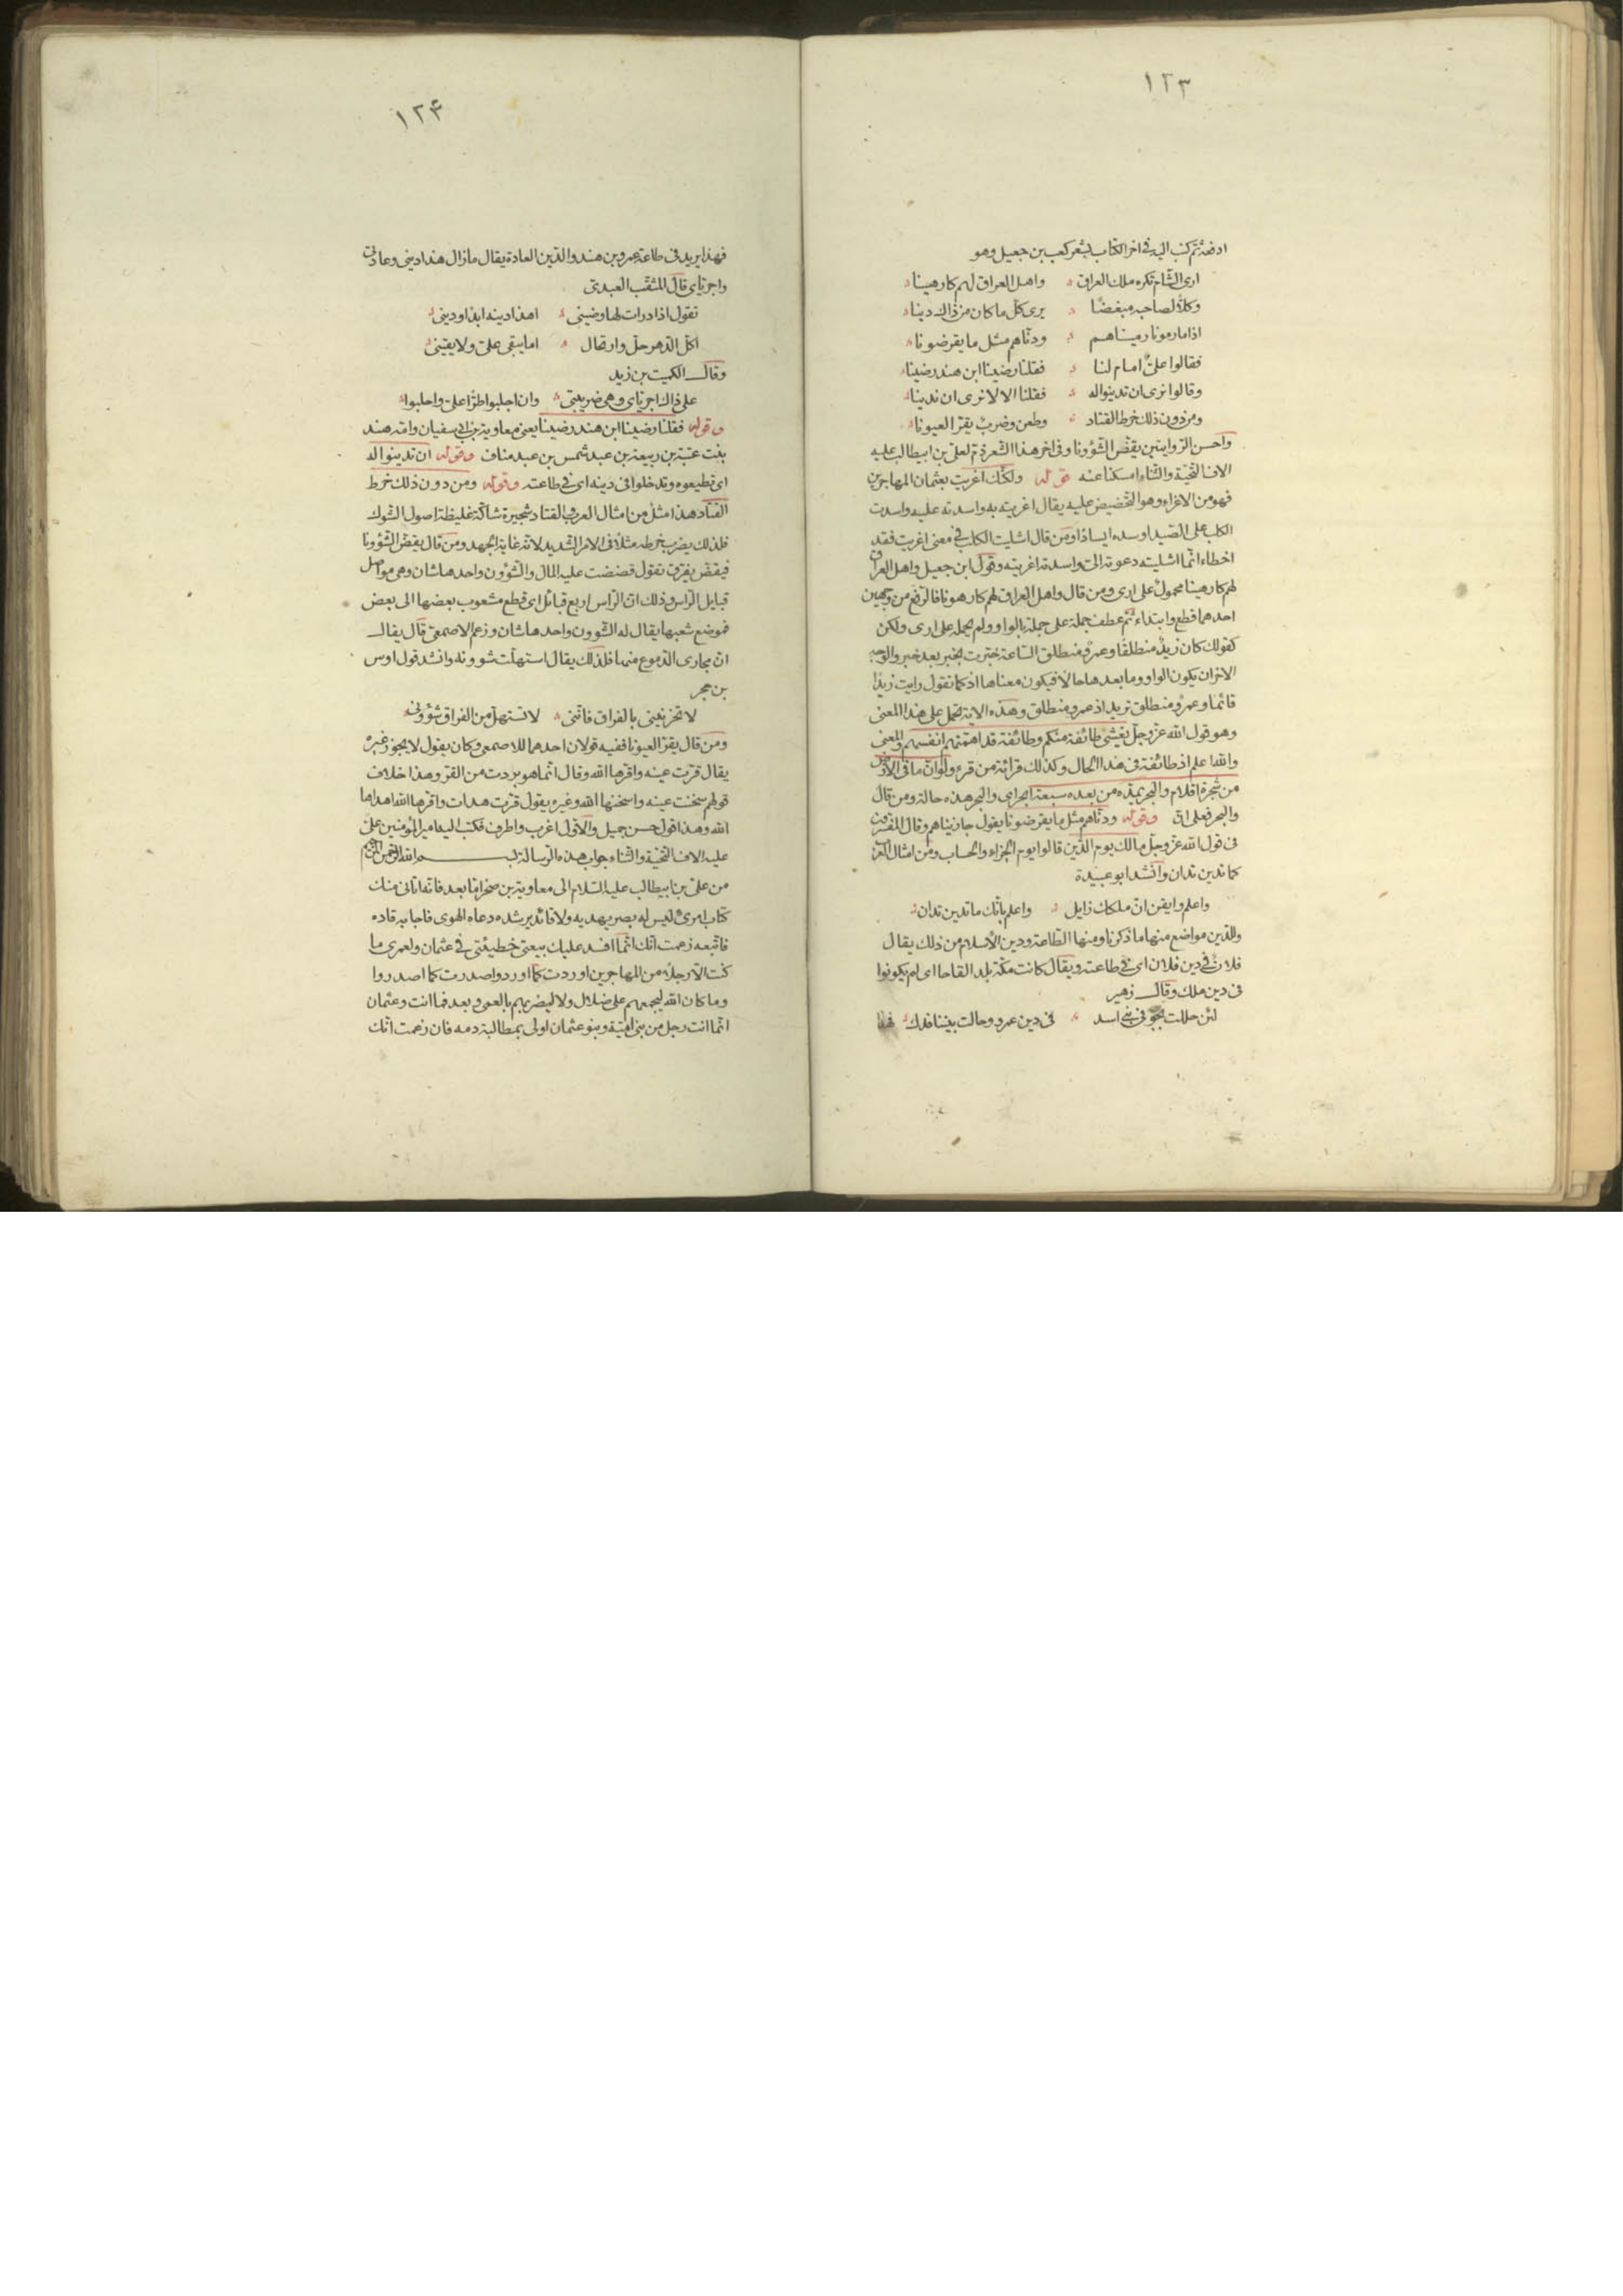 ١٢٣
ادفعه ثم كتب اليه فى اخر الكتاب بشعر كعب بن جعيل وهو
ارى الشام تكره ملك العراق واهل العراق لهم كارهينا
وكلا لصاحبه مبغضا يرى كل ما كان من ذاك دينا
اذا ما رمونا رميناهم ودناهم مثل ما يقرضونا
فقالوا على امام لنا فقلنا رضينا ابن هند رضينا
وقالوا نرى ان تدينوا له فقلنا الا لا نرى ان ندينا
ومن دون ذلك خرط القتاد وطعن وضرب يقر العيونا
واحسن الروايتين يفض الشؤونا وفى اخر هذا الشعر ذم لعلى بن ابيطالب عليه
الاف التحية والثناء امسكنا عنه قوله ولكنك اغريت بعثمان المهاجرين
فهو من الاغراء وهو التحضيض عليه يقال اغريته به واسدته عليه واسدت
الكلب على الصيد اوسده ايسادا ومن قال اشليت الكلب فى معنى اغريت فقد
اخطاء انما اشليته دعوته الى واسدته اغريته وقول ابن جعيل واهل العراق
لهم كارهينا محمول على ارى ومن قال واهل العراق لهم كارهونا فالرفع من وجهين
احدهما قطع وابتداء ثم عطف جملة على جملة بالواو ولم يحمله على ارى ولكن
كقولك كان زيد منطلقا وعمرو منطلق الساعة خبرت بخبر بعد خبر والوجه
الاخر ان يكون الواو وما بعدها حالا فيكون معناها اذ كما تقول رايت زيدا
قائما وعمرو منطلق تريد اذ عمرو منطلق وهذه الاية تحمل على هذا المعنى
وهو قول الله عز وجل يغشى طائفة منكم وطائفة قد اهمتهم انفسهم والمعنى
والله اعلم اذ طائفة فى هذا الحال وكذلك قرائة من قرء ولو ان ما فى الارض
من شجرة اقلام والبحر يمده من بعده سبعة ابحر اى والبحر هذه حاله ومن قال
والبحر فعلى ان وقوله ودناهم مثل ما يقرضونا يقول جازيناهم وقال المفسرون
فى قول الله عز وجل مالك يوم الدين قالوا يوم الجزاء والحساب ومن امثال العرب
كما تدين تدان وانشد ابو عبيدة
واعلم وايقن ان ملكك زايل واعلم بانك ما تدين تدان
وللدين مواضع منها ما ذكرنا ومنها الطاعة ودين الاسلام من ذلك يقال
فلان فى دين فلان اى فى طاعته ويقال كانت مكة بلدا لقاحا اى لم يكونوا
فى دين ملك وقال زهير
لئن حللت بجو فى بنى اسد فى دين عمرو وحالت بيننا فدك فهذا
١٢۴
فهذا يريد فى طاعة عمرو بن هند والدين العادة يقال ما زال هذا دينى وعادتى
واجرياى قال المثقب العبدى
تقول اذا درات لها وضينى اهذا دينه ابدا ودينى
اكل الدهر حل وارتحال اما يبقى على ولا يقينى
وقال الكميت بن زيد
على ذاك اجرياى وهى ضريبتى وان اجلبوا طرا على واحلبوا
وقوله فقلنا رضينا ابن هند رضينا يعنى معاوية بن ابى سفيان وامه هند
بنت عتبة بن ربيعة بن عبد شمس بن عبد مناف وقوله ان تدينوا له
اى تطيعوه وتدخلوا فى دينه اى فى طاعته وقوله ومن دون ذلك خرط
القتاد هذا مثل من امثال العرب والقتاد شجيرة شاكة غليظة اصول الشوك
فلذلك يضرب خرطه مثلا فى الامر الشديد لانه غاية الجهد ومن قال يفض الشؤونا
فيفض يفرق تقول فضضت عليه المال والشؤون واحدها شان وهى مواصل
قبايل الراس وذلك ان الراس اربع قبائل اى قطع مشعوب بعضها الى بعض
فموضع شعبها يقال له الشوون واحدها شان وزعم الاصمعى قال يقال
ان مجارى الدموع منها فلذلك يقال استهلت شوونه وانشد قول اوس
بن حجر
لا تحزنينى بالفراق فاننى لا تستهل من الفراق شؤونى
ومن قال يقر العيونا ففيه قولان احدهما للاصمعى وكان يقول لا يجوز غيره
يقال قرت عينه واقرها الله وقال انما هو بردت من القر وهذا خلاف
قولهم سخنت عينه واسخنها الله وغيره يقول قرت هدات واقرها الله اهداها
الله وهذا قول حسن جميل والاول اغرب واطرف فكتب اليه امير المؤمنين على
عليه الاف التحية والثناء جواب هذه الرسالة بسم الله الرحمن الرحيم
من على بن ابيطالب عليه السلام الى معاوية بن صخر اما بعد فانه اتانى منك
كتاب امرئ ليس له بصر يهديه ولا قائد يرشده دعاه الهوى فاجابه قاده
فاتبعه زعمت انك انما افسد عليك بيعتى خطيئتى فى عثمان ولعمرى ما
كنت الا رجلا من المهاجرين اوردت كما اوردوا واصدرت كما اصدروا
وما كان الله ليجمعهم على ضلال ولا ليضربهم بالعمى وبعد فما انت وعثمان
انما انت رجل من بنى امية وبنو عثمان اولى بمطالبة دمه فان زعمت انك